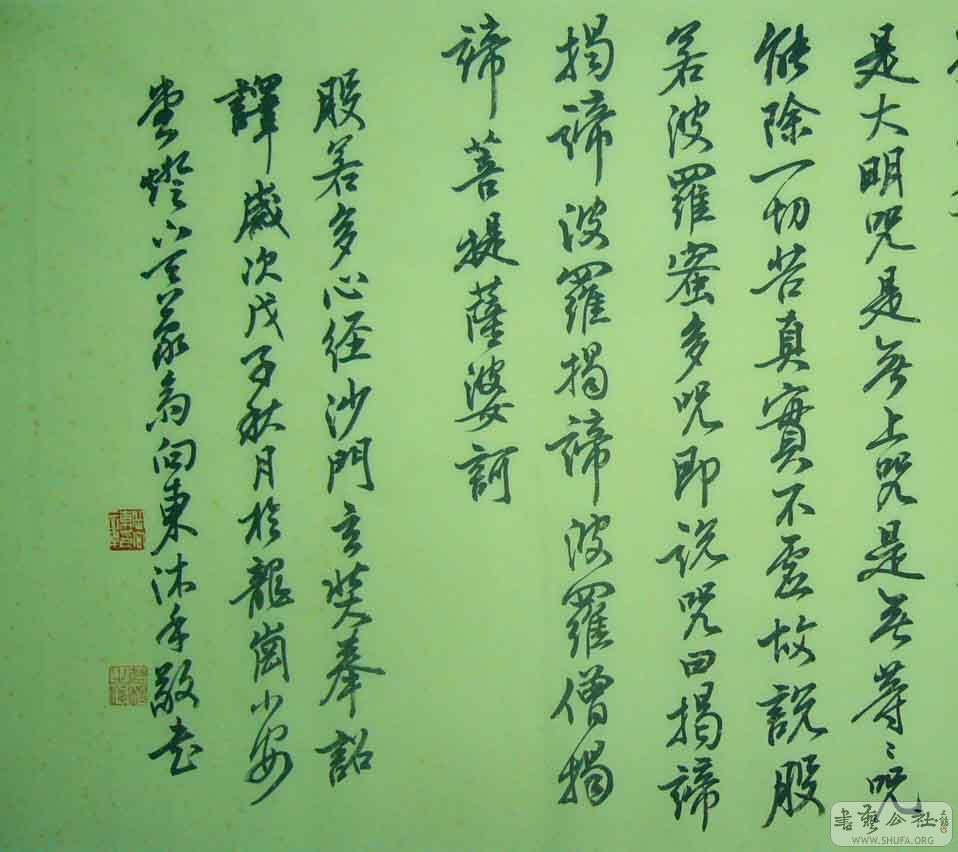 是大明咒是無上咒是無等〻咒
能除一切苦真實不虛故說般
若波羅蜜多咒即说咒曰揭諦
揭諦波羅揭諦波羅僧揭
諦菩提薩婆訶
般若多心经沙門玄奘奉詔
譯歲次戊子秋月於龍崗小安
堂燈下向東沐手敬书
書藝公社
WWW.SHUFA.ORG